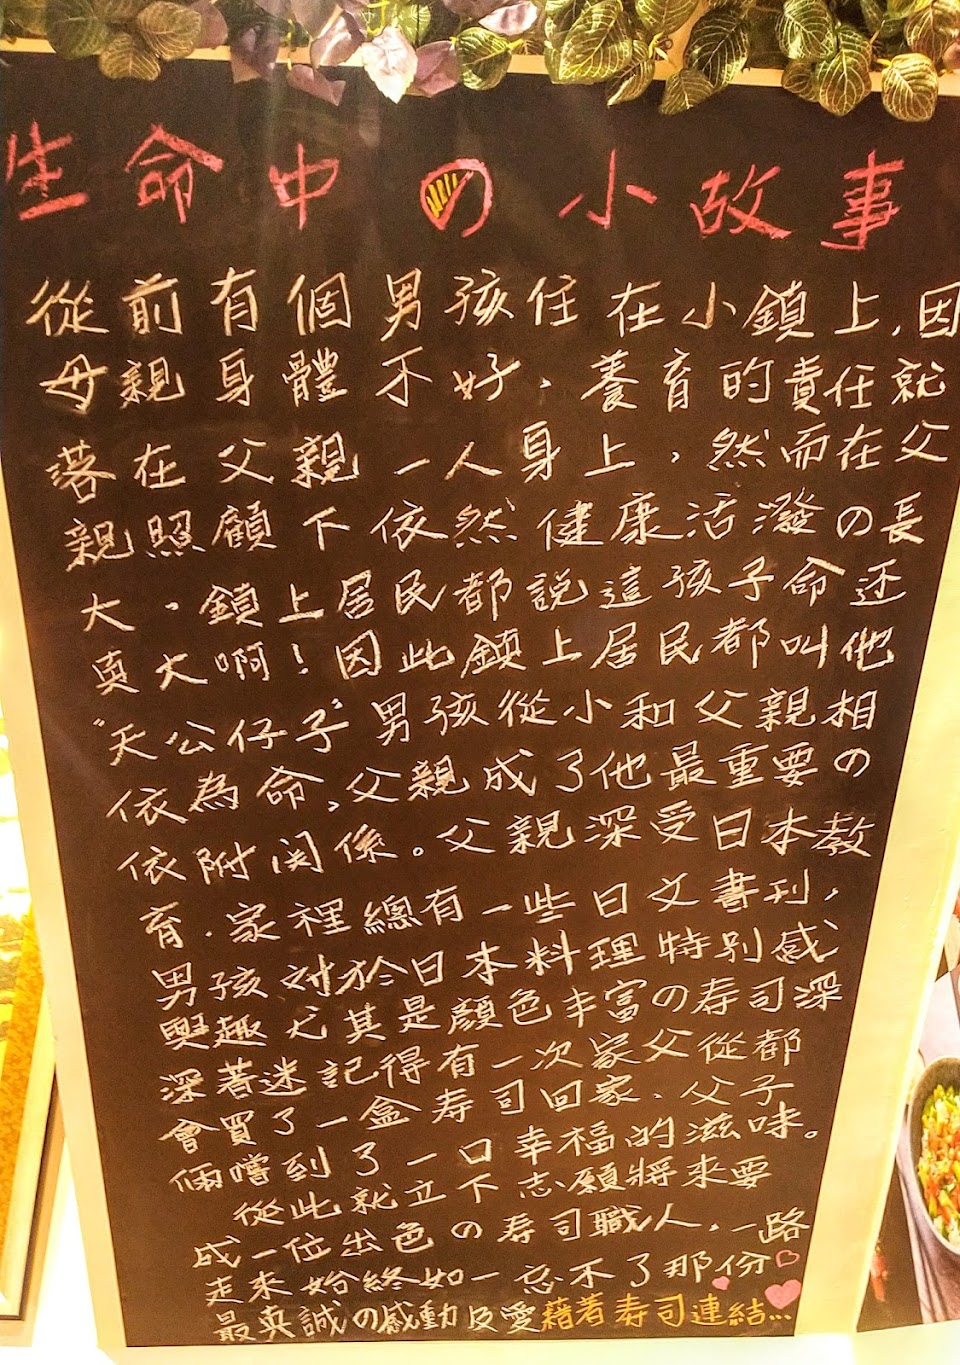 生命中の小故事
從前有個男孩住在小鎮上,因
母親身體不好、養育的責任就
落在父親一人身上,然而在父
親照顧下依然健康活潑の長
大、鎮上居民都說這孩子命还
真大啊!因此鎮上居民都叫他
"天公仔子"男孩從小和父親相
依為命,父親成了他最重要の
依附関係。父親深受日本教
育、家裡總有一些日文書刊,
男孩対於日本料理特別感
興趣尤其是顏色丰富の寿司深
深著迷記得有一次家父從都
會買了一盒寿司回家、父子
倆嚐到了一口幸福的滋味。
從此就立下志願將來要
成一位出色の寿司職人,一路
走來始終如一忘不了那份
最真誠の感動及愛藉著寿司連結...